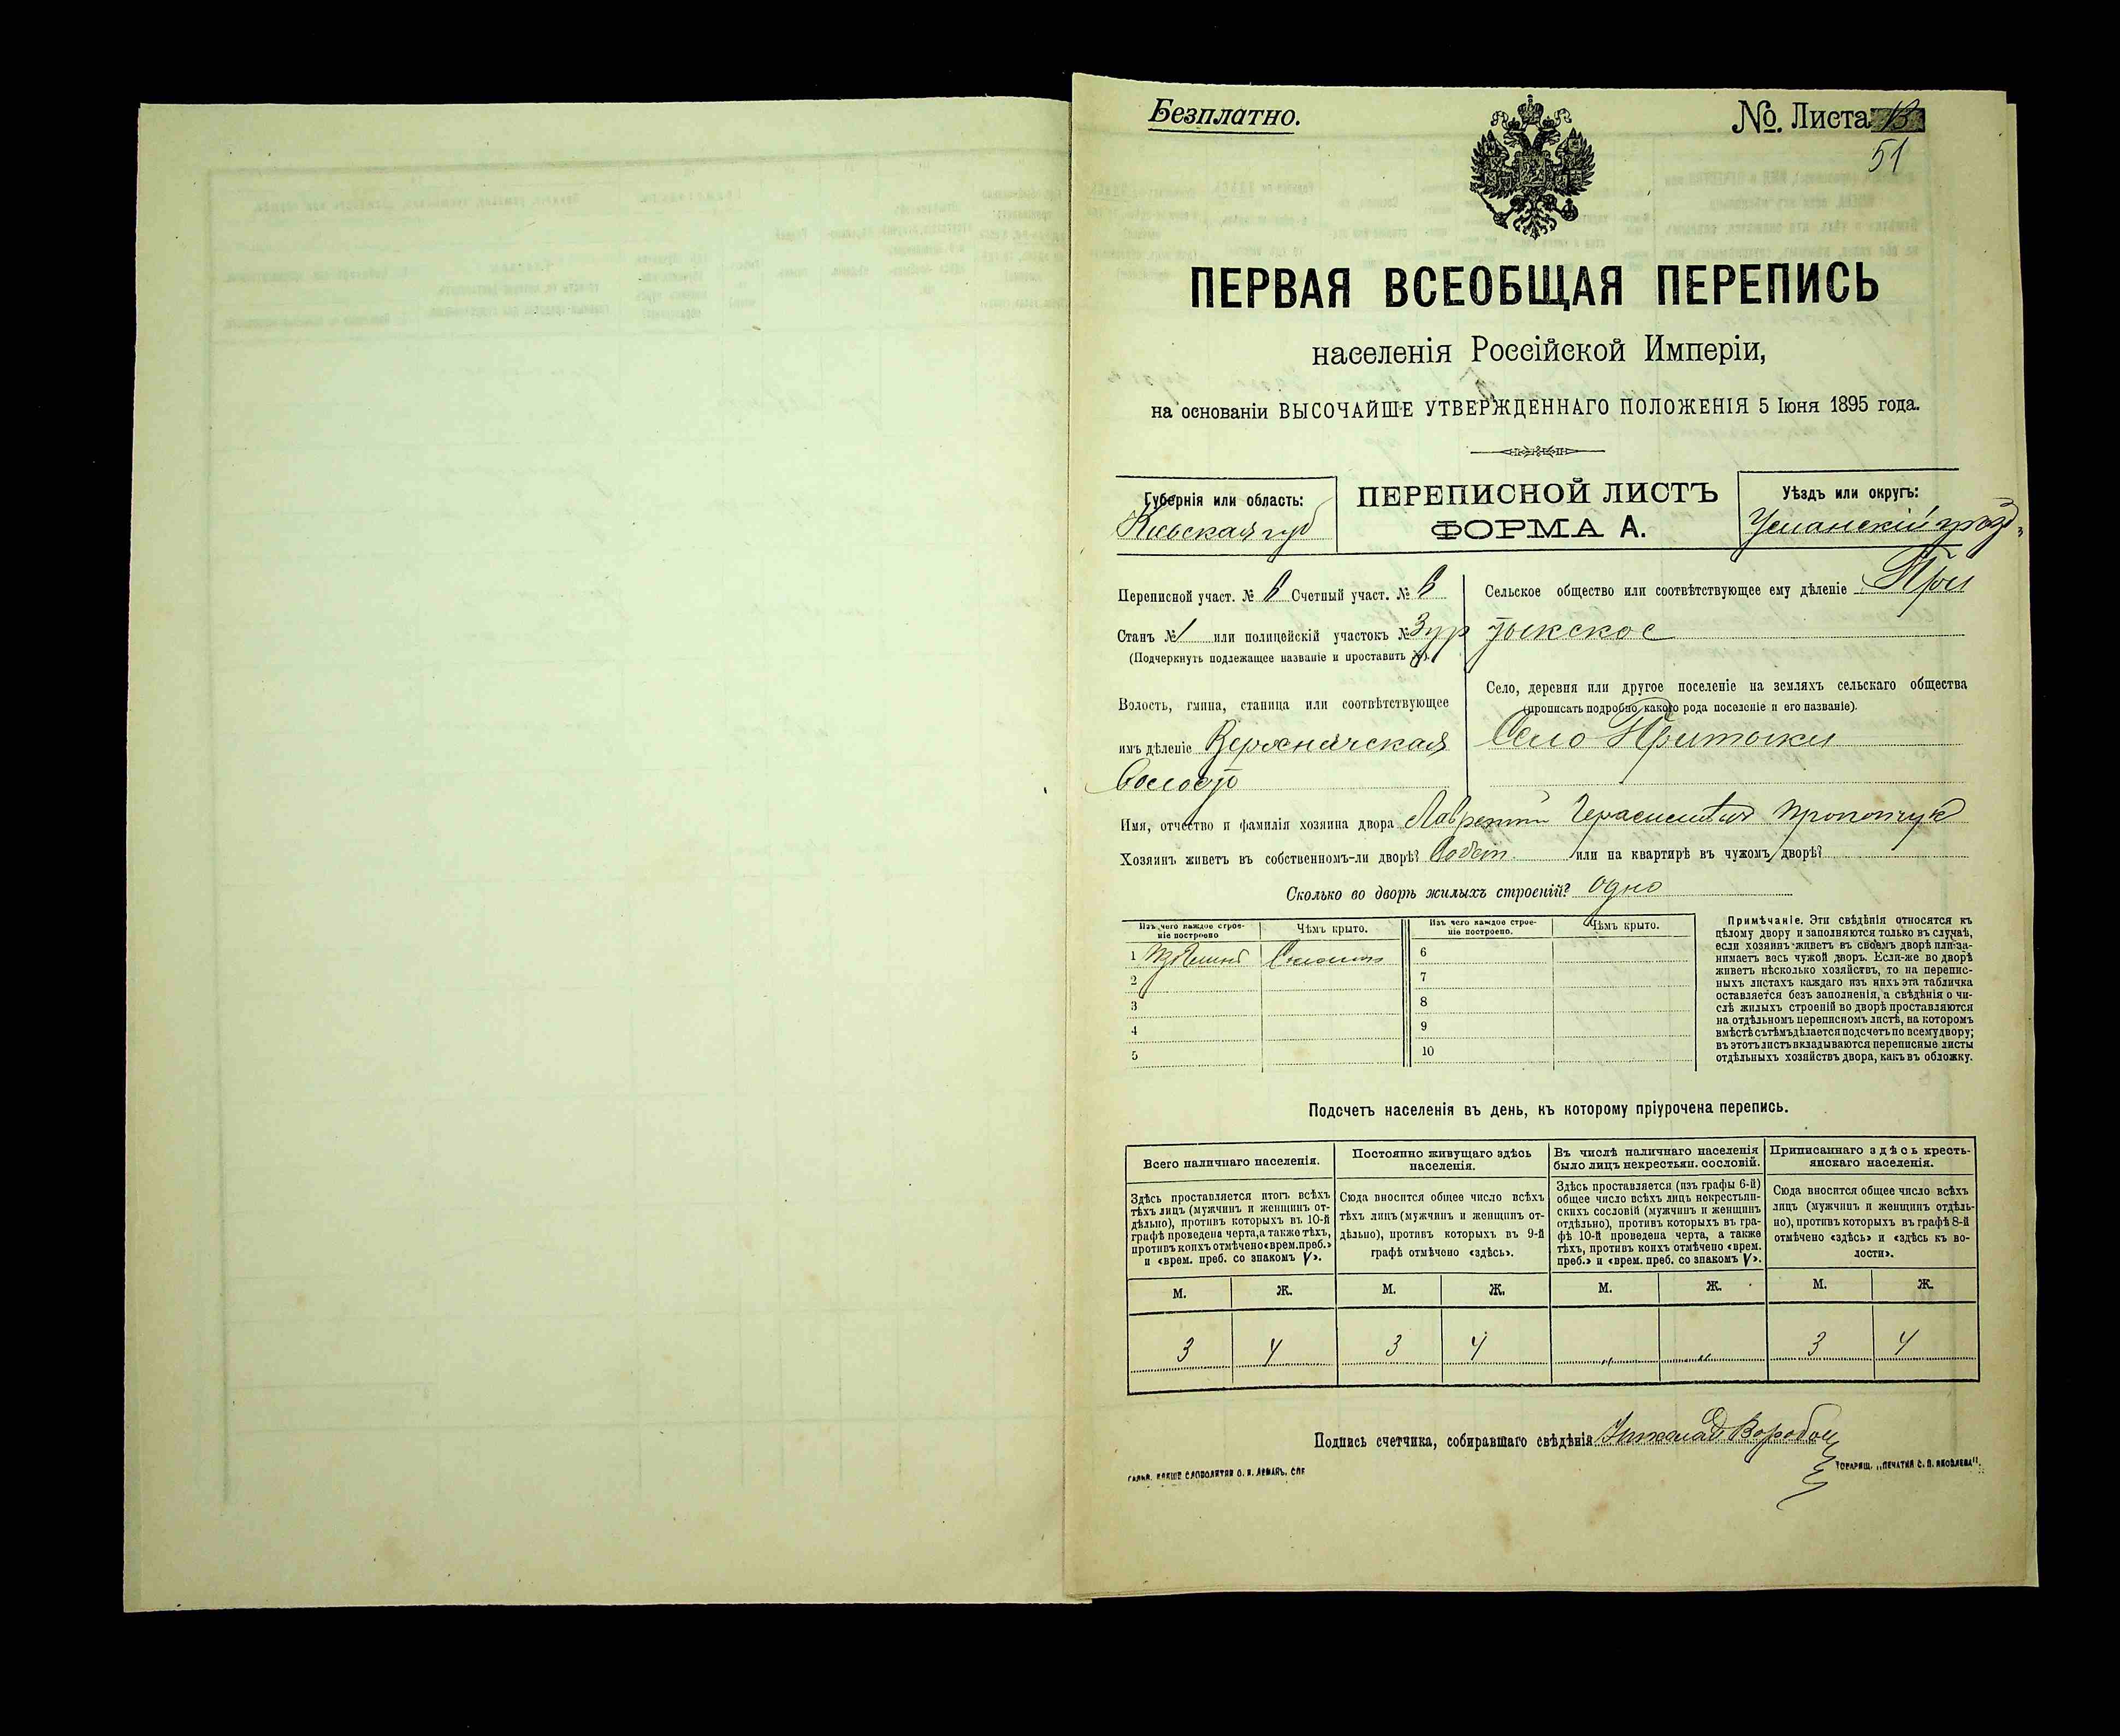 Безплатно.
№. Листа
51
ПЕРВАЯ ВСЕОБЩАЯ ПЕРЕПИСЬ
населенія Россійской Имперіи,
на основаніи ВЫСОЧАЙШЕ УТВЕРЖДЕННАГО ПОЛОЖЕНІЯ 5 Іюня 1895 года.
Губернія или область:
Кіевская губ
ПЕРЕПИСНОЙ ЛИСТЪ
ФОРМА А.
Уѣздъ или округъ:
Уманскій уѣздъ
Переписной участ. № Счетный участ. №
Станъ № 1 или полицейскій участокъ № 3 ур
(Подчеркнуть подлежащее названіе и проставить №).
Волость, гмина, станица или соотвѣтствующее
имъ дѣленіе Верхнячская
Волость
Сельское общество или соотвѣтствующее ему дѣленіе При
тыкское
Село, деревня или другое поселеніе на земляхъ сельскаго общества
(прописать подробно какого рода поселеніе и его названіе).
Село Притыки
Имя, отчество и фамилія хозяина двора Лаврентій Герасимовъ Прокопчукъ
Хозяинъ живетъ въ собственномъ-ли дворѣ? Собст. или на квартирѣ въ чужомъ дворѣ?
Сколько во дворѣ жилыхъ строеній? Одно
Изъ чего каждое строе-
ніе построено
Чѣмъ крыто.
Изъ чего каждое строе-
ніе построено.
Чѣмъ крыто.
1 Изъ глины Соломою 6
2 7
3 8
4 9
5 10
Примѣчаніе. Эти свѣдѣнія относятся къ
цѣлому двору и заполняются только въ случаѣ,
если хозяинъ живетъ въ своемъ дворѣ или за-
нимаетъ весь чужой дворъ. Если-же во дворѣ
живетъ нѣсколько хозяйствъ, то на перепис-
ныхъ листахъ каждаго изъ нихъ эта табличка
оставляется безъ заполненія, а свѣдѣнія о чи-
слѣ жилыхъ строеній во дворѣ проставляются
на отдѣльномъ переписномъ листѣ, на которомъ
вмѣстѣ съ тѣмъ дѣлается подсчетъ по всему двору;
въ этотъ листъ вкладываются переписные листы
отдѣльныхъ хозяйствъ двора, какъ въ обложку.
Подсчетъ населенія въ день, къ которому пріурочена перепись.
Всего наличнаго населенія.
Здѣсь проставляется итогъ всѣхъ
тѣхъ лицъ (мужчинъ и женщинъ от-
дѣльно), противъ которыхъ въ 10-й
графѣ проведена черта, а также тѣхъ,
противъ коихъ отмѣчено «врем. преб.»
и «врем. преб. со знакомъ V».
Постоянно живущаго здѣсь
населенія.
Сюда вносится общее число всѣхъ
тѣхъ лицъ (мужчинъ и женщинъ от-
дѣльно), противъ которыхъ въ 9-й
графѣ отмѣчено «здѣсь».
Въ числѣ наличнаго населенія
было лицъ некрестьян. сословій.
Здѣсь проставляется (изъ графы 6-й)
общее число всѣхъ лицъ некрестьян-
скихъ сословій (мужчинъ и женщинъ
отдѣльно), противъ которыхъ въ гра-
фѣ 10-й проведена черта, а также
тѣхъ, противъ коихъ отмѣчено «врем.
преб.» и «врем. преб. со знакомъ V».
Приписаннаго здѣсь кресть-
янскаго населенія.
Сюда вносится общее число всѣхъ
лицъ (мужчинъ и женщинъ отдѣль-
но), противъ которыхъ въ графѣ 8-й
отмѣчено «здѣсь» и «здѣсь къ во-
лости».
М. Ж. М. Ж. М. Ж. М. Ж.
3 4 3 4 „ „ 3 4
Подпись счетчика, собиравшаго свѣдѣнія
ТОВАРИЩ. „ПЕЧАТНЯ С. П. ЯКОВЛЕВА".